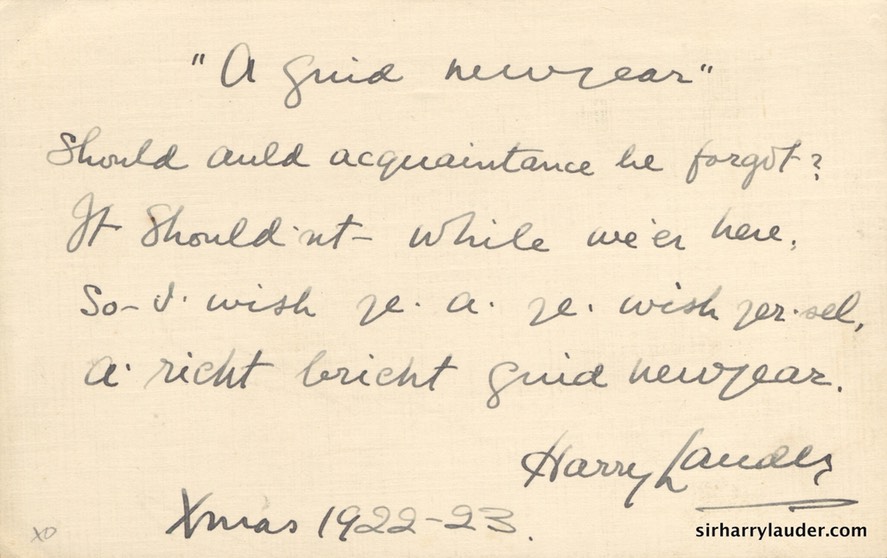 "A guid newyear"
Should auld acquaintance be forgot?
It Should'nt - while we'er here,
So - I. wish ye. a. ye. wish yer.sel,
A. richt bricht guid newyear.
Harry Lauder
Xmas 1922-23.
XO
sirharrylauder.com